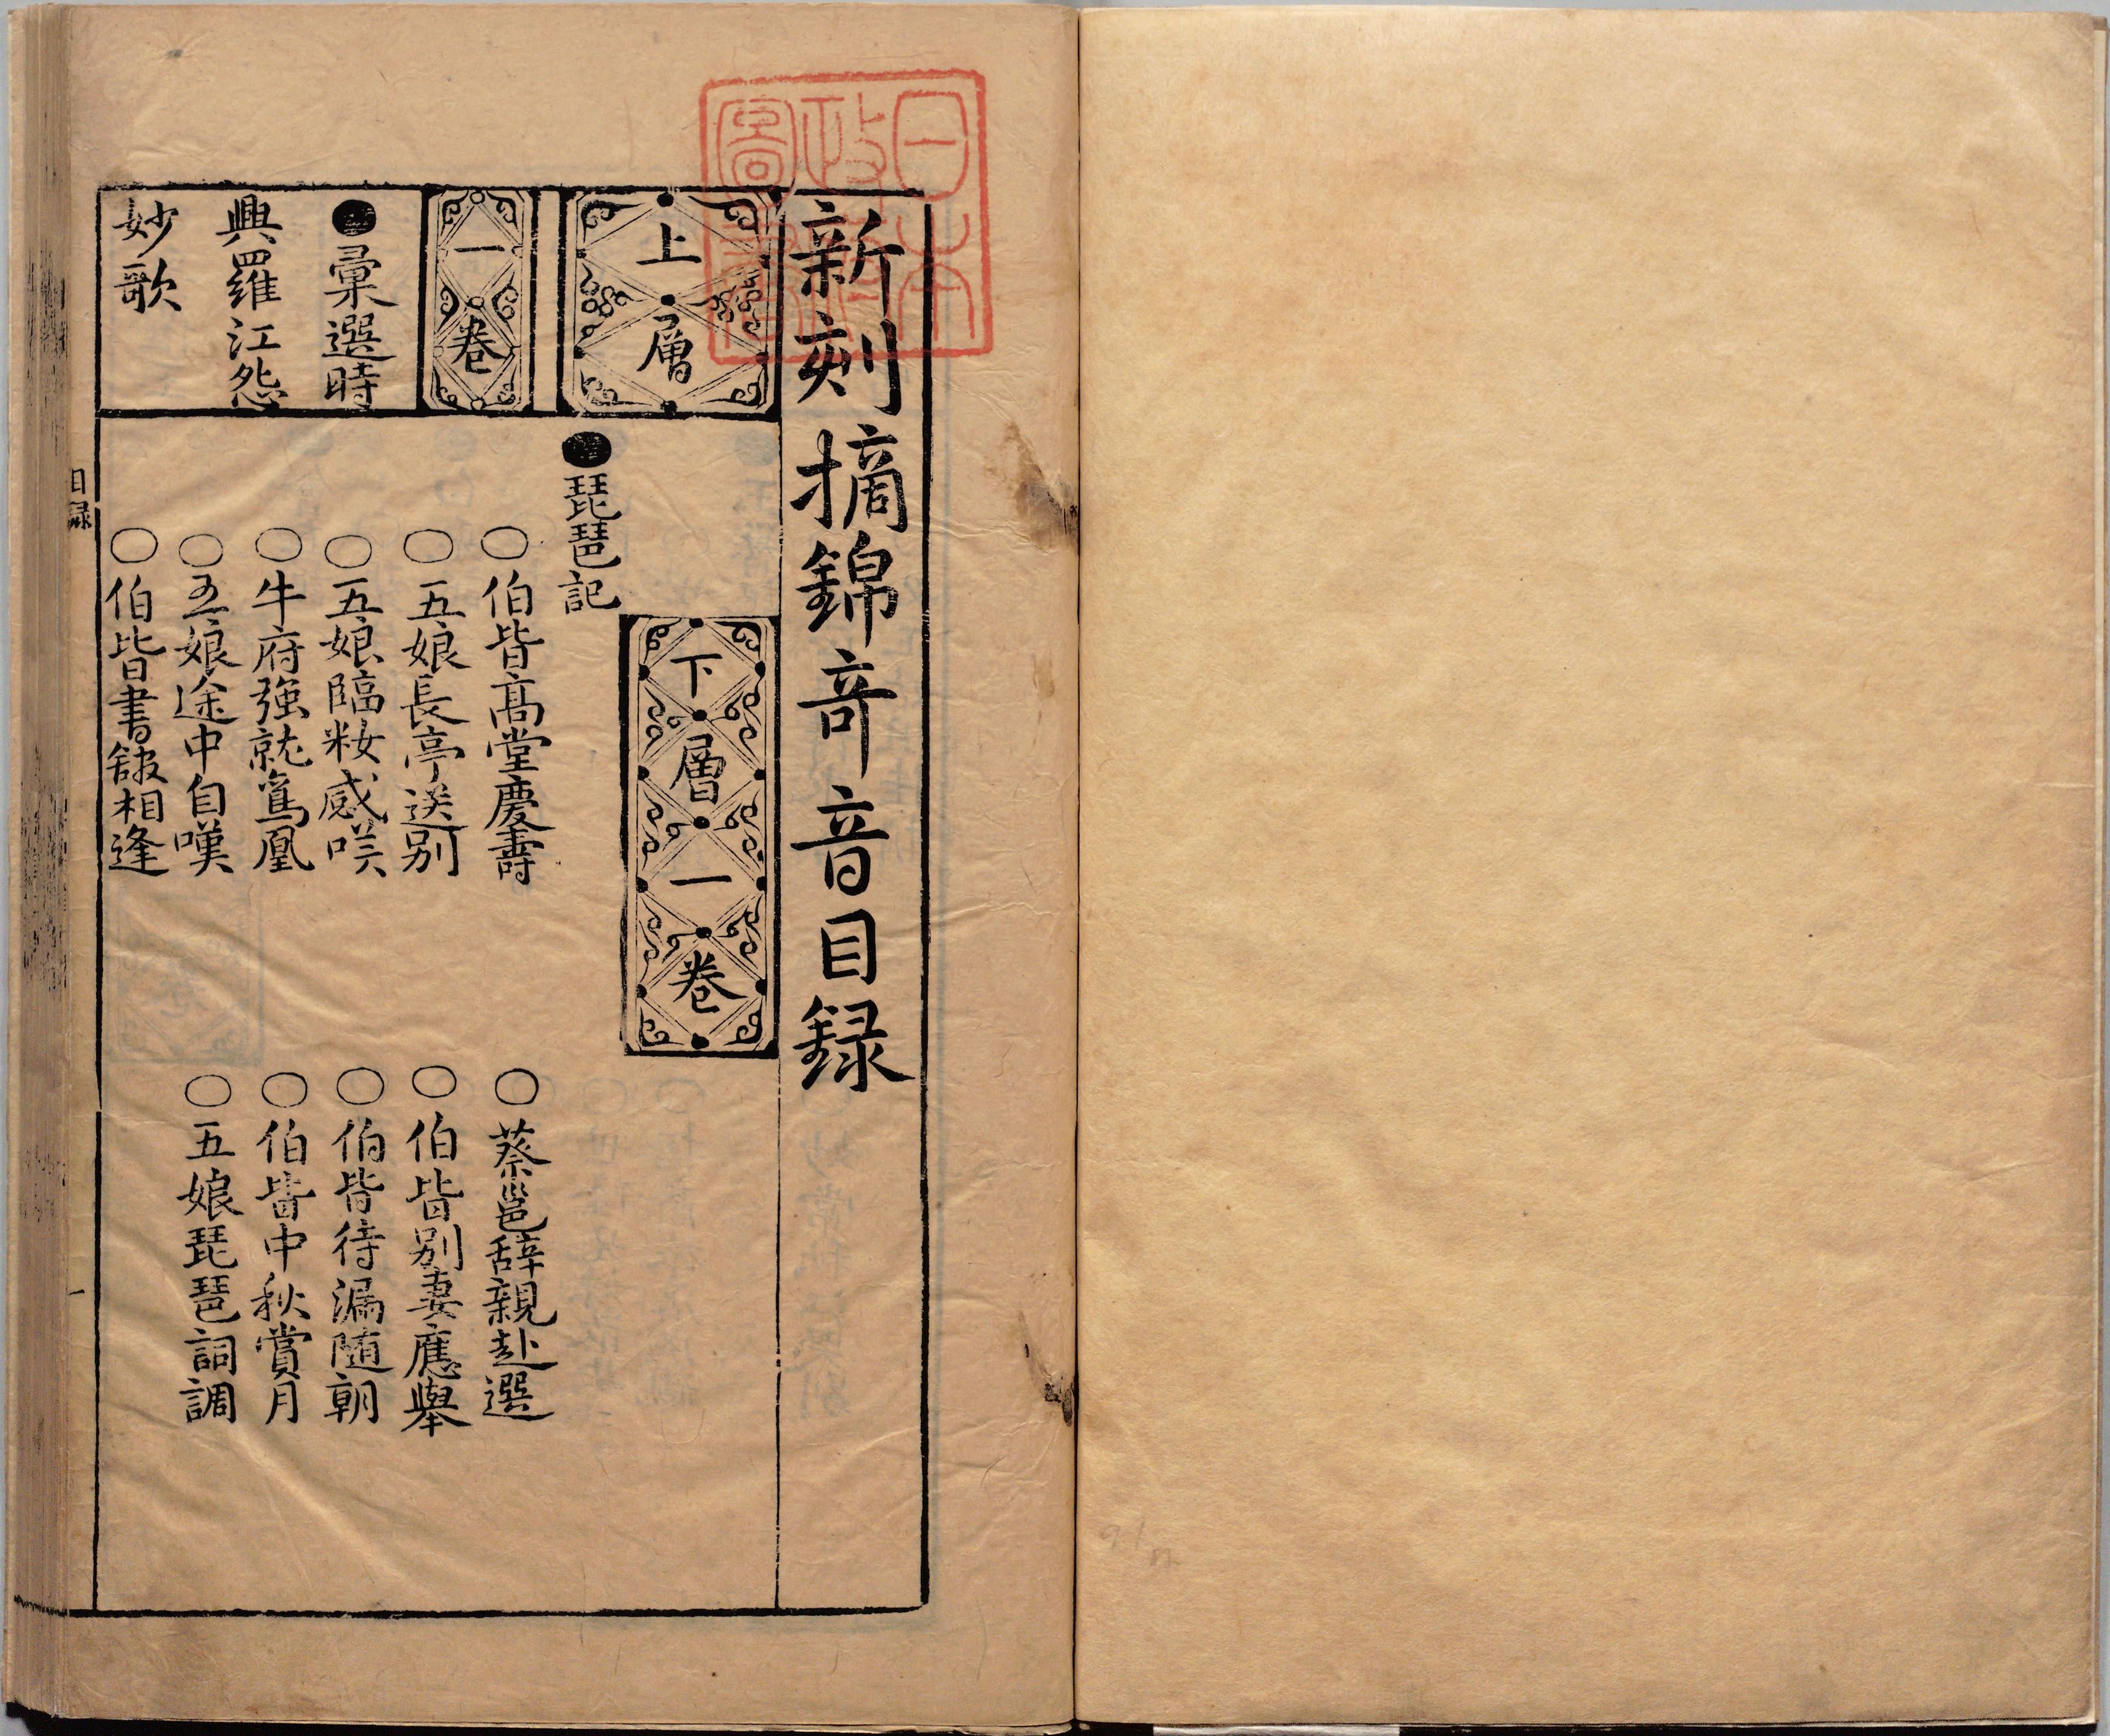 日本
政府
圖書
新刻摘錦竒音目録
上層
一卷
彙選時
興羅江怨
妙歌
下層一卷
琵琶記
伯皆髙堂慶壽
蔡邕辞親赴選
五娘長亭送别
伯皆别妻應舉
五娘臨籹感咲
伯皆待漏随朝
牛府強就鸞凰
伯皆中秋賞月
五娘途中自嘆
五娘琵琶詞調
伯皆書舘相逢
目録
一